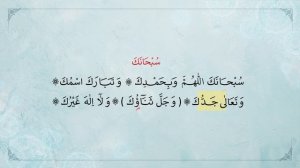 سُبْحَانَكَ
سُبْحَانَكَ اللّٰهُمَّ وَبِحَمْدِكَ ❋ وَتَبَارَكَ اسْمُكَ ❋
وَتَعَالٰى جَدُّكَ ❋ ( وَجَلَّ ثَنَاۤؤُكَ ) ❋ وَلَاۤ اِلٰهَ غَيْرُكَ ❋